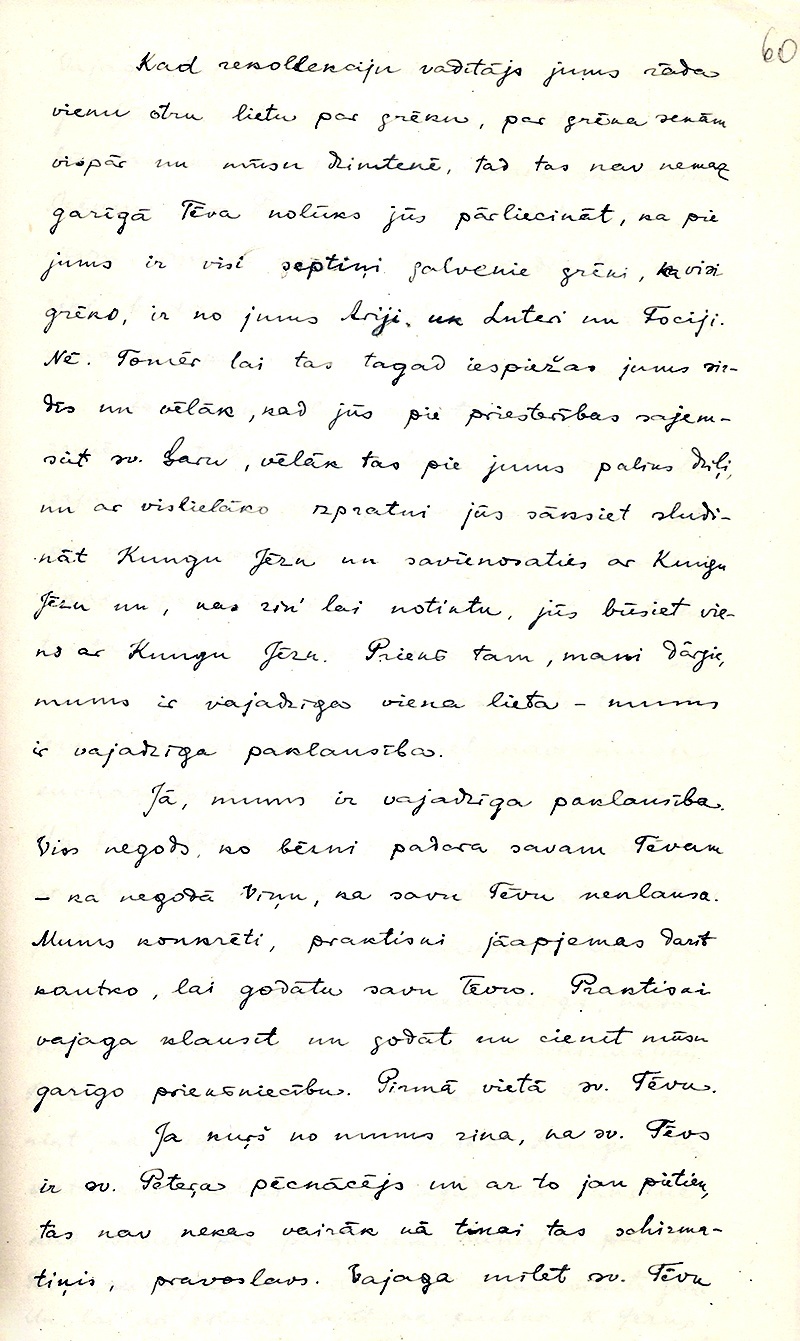 60
Kad rekollekciju vadītājs jums rāda
vienu otru lietu par grēku, par grēka sekām
vispār un mūsu dzimtenē, tad tas nav nemaz
garīgā Tēva nolūks jūs pārliecināt, ka pie
jums ir visi septiņi galvenie grēki, ka visi
grēko, ir no jums Ariji, un Luteri un Fociji.
Nē. Tomēr lai tas tagad iespiežas jums sir-
dīs un vēlāk, kad jūs pie priesterības saņem-
sit sv. Garu, vēlāk tas pie jums paliks dziļi,
un ar vislielāko izpratni jūs sāksiet sludi-
nāt Kungu Jēzu un savienosaties ar Kungu
Jēzu un, kas zin' lai notiktu, jūs būsiet vie-
no ar Kungu Jēzu. Priekš tam, mani dārgie,
mums ir vajadzīga viena lieta – mums
ir vajadzīga paklausība.
Jā, mums ir vajadzīga paklausība.
Viss negods, ko bērni padara savam Tēvam
– ka negodā Viņu, ka savu Tēvu neklausa.
Mums konkrēti, praktiski jāapņemas darīt
kautko, lai godātu savu Tēvu. Praktiski
vajaga klausīt un godāt un cienīt mūsu
garīgo priekšniecību. Pirmā vietā sv. Tēvu.
Ja kuŗš no mums zina, ka sv. Tēvs
ir sv. Peteŗa pēcnācējs un ar to jau pietiek,
tas nav nekas vairāk kā tikai tas schizma-
tiķis, pravoslavs. Vajaga mīlēt sv. Tēvu